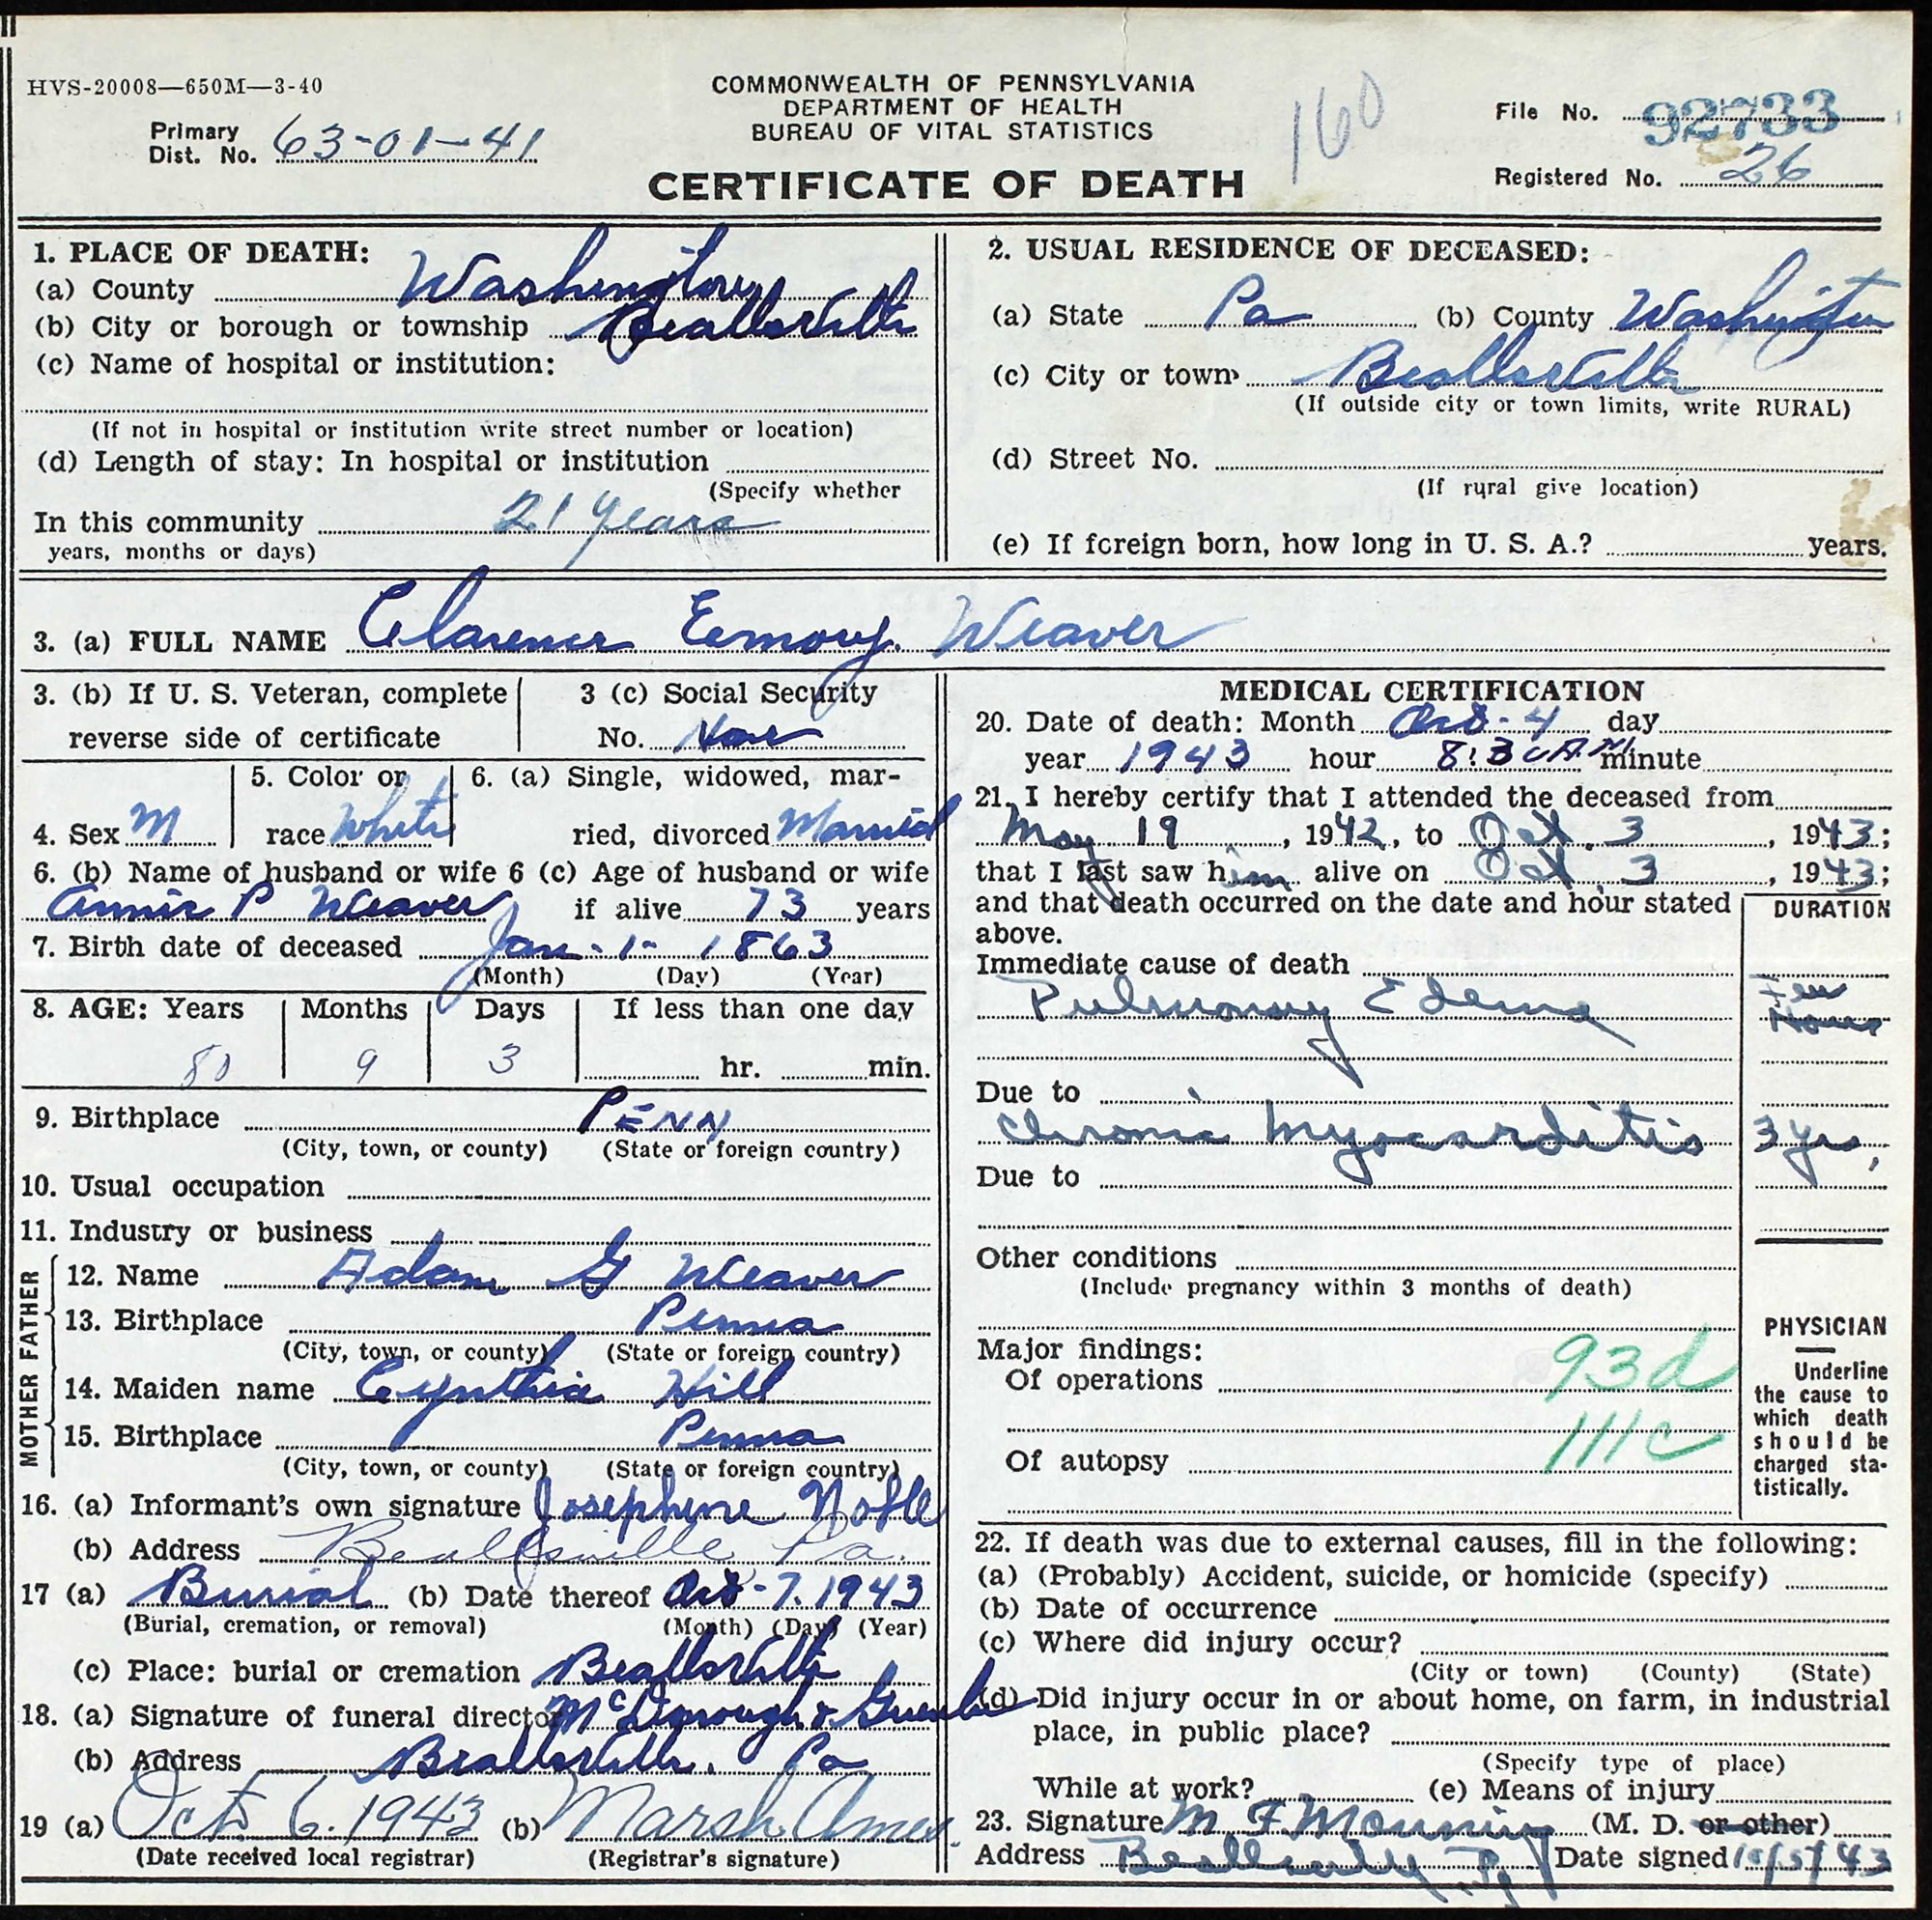 HVS-20008—650M—3-40
COMMONWEALTH OF PENNSYLVANIA
DEPARTMENT OF HEALTH
BUREAU OF VITAL STATISTICS
CERTIFICATE OF DEATH
Primary
Dist. No. 63-01-41
160
File No. 92733
Registered No. 26
1. PLACE OF DEATH:
(a) County Washington
(b) City or borough or township Beallsville
(c) Name of hospital or institution:
(If not in hospital or institution write street number or location)
(d) Length of stay: In hospital or institution
(Specify whether
In this community 21 years
years, months or days)
2. USUAL RESIDENCE OF DECEASED:
(a) State Pa (b) County Washington
(c) City or town Beallsville
(If outside city or town limits, write RURAL)
(d) Street No.
(If rural give location)
(e) If foreign born, how long in U. S. A.? years.
3. (a) FULL NAME Clarence Eemory. Weaver
3. (b) If U. S. Veteran, complete
reverse side of certificate
3 (c) Social Security
No. None
4. Sex M
5. Color or
race White
6. (a) Single, widowed, mar-
ried, divorced Married
6. (b) Name of husband or wife 6 (c) Age of husband or wife
Annie P Weaver if alive 73 years
7. Birth date of deceased Jan - 1 - 1863
(Month) (Day) (Year)
8. AGE: Years Months Days If less than one day
80 9 3 hr. min.
9. Birthplace PENN
(City, town, or county) (State or foreign country)
10. Usual occupation
11. Industry or business
FATHER
12. Name Adam G Weaver
13. Birthplace Penna
(City, town, or county) (State or foreign country)
MOTHER
14. Maiden name Cynthia Hill
15. Birthplace Penna
(City, town, or county) (State or foreign country)
16. (a) Informant's own signature Josephine Noble
(b) Address Beallsville Pa.
17 (a) Burial (b) Date thereof Oct - 7. 1943
(Burial, cremation, or removal) (Month) (Day) (Year)
(c) Place: burial or cremation Beallsville
18. (a) Signature of funeral director McDonough &
(b) Address Beallsville. Pa
19 (a) Oct. 6. 1943 (b) Marsh Ames.
(Date received local registrar) (Registrar's signature)
MEDICAL CERTIFICATION
20. Date of death: Month Oct - 4 day
year 1943 hour 8:30 AM minute
21. I hereby certify that I attended the deceased from
May 19, 1942, to Oct. 3, 1943;
that I last saw him alive on Oct. 3, 1943;
and that death occurred on the date and hour stated
above.
DURATION
Immediate cause of death
Pulmonary Edema Few
Hours
Due to
Chronic Myocarditis 3 yrs,
Due to
Other conditions
(Include pregnancy within 3 months of death)
Major findings:
Of operations 93d
111c
Of autopsy
PHYSICIAN
Underline
the cause to
which death
should be
charged sta-
tistically.
22. If death was due to external causes, fill in the following:
(a) (Probably) Accident, suicide, or homicide (specify)
(b) Date of occurrence
(c) Where did injury occur?
(City or town) (County) (State)
(d) Did injury occur in or about home, on farm, in industrial
place, in public place?
(Specify type of place)
While at work? (e) Means of injury
23. Signature M F. (M. D. or other)
Address Beallsville, Pa Date signed 10/5/43